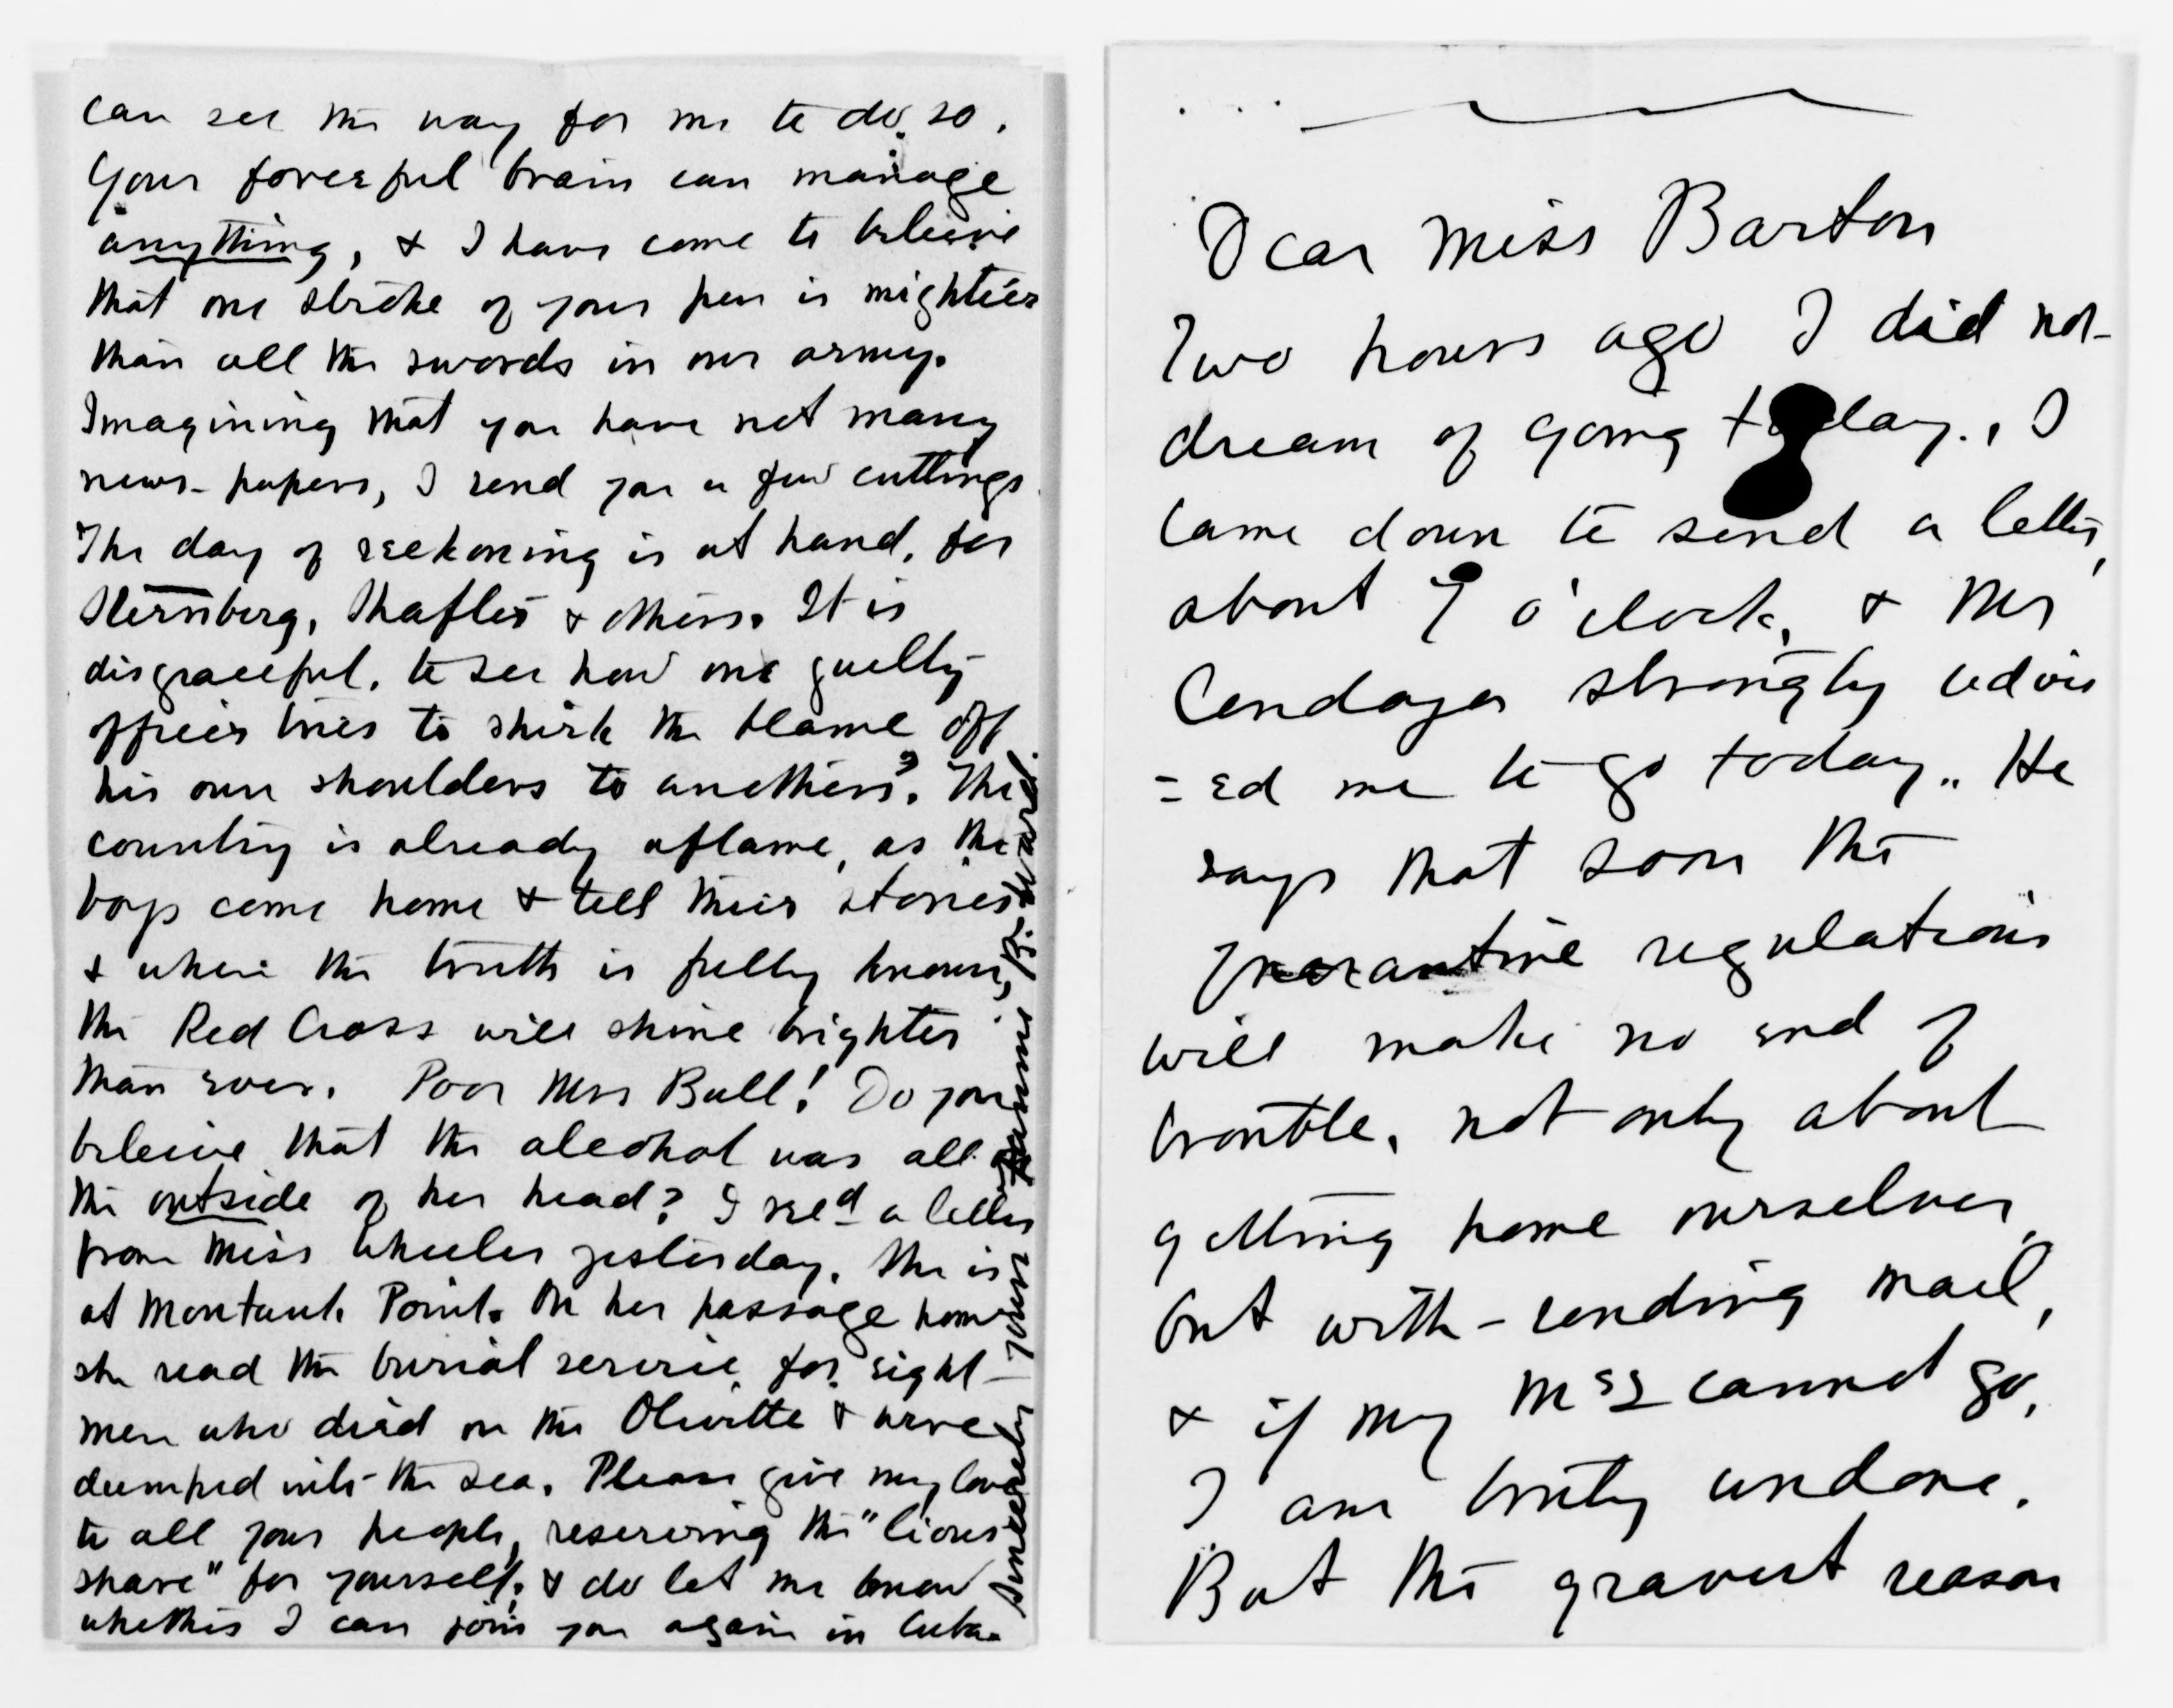 can see the way for me to do so.
Your forceful brain can manage
anything, & I have come to beleive
that one stroke of your pen is mightier
than all the swords in our army.
Imagining that you have not many
news-papers, I send you a few cuttings.
The day of reckoning is at hand, for
Sternberg, Shafter & others. It is
disgraceful, to see how one guilty
officer tries to shirk the blame off
his own shoulders to anothers'. The
country is already aflame, as the
boys come home & tell their stories
& when the truth is fully known,
the Red Cross will shine brighter
than ever. Poor Mrs Bull! Do you
beleive that the alcohol was all on
the outside of her head? I recd a letter
from Miss Wheeler yesterday. She is
at Montauk Point. On her passage home
she read the burial service for eight
men who died on the Olivette & were
dumped into the sea. Please give my love
to all your people, reserving the "lions
share" for yourself, & do let me know
whether I can join you again in Cuba.
Sincerely yours Fannie B. Ward.
Dear Miss Barton
Two hours ago I did not
dream of going today., I
came down to send a letter,
about 9 o'clock, & Mr
Cendoya strongly advis
=ed me to go today.. He
says that soon the
quarantine regulations
will make no end of
trouble, not only about
getting home ourselves,
but with-sending mail,
& if my Mss cannot go,
I am truly undone.
But the gravest reason